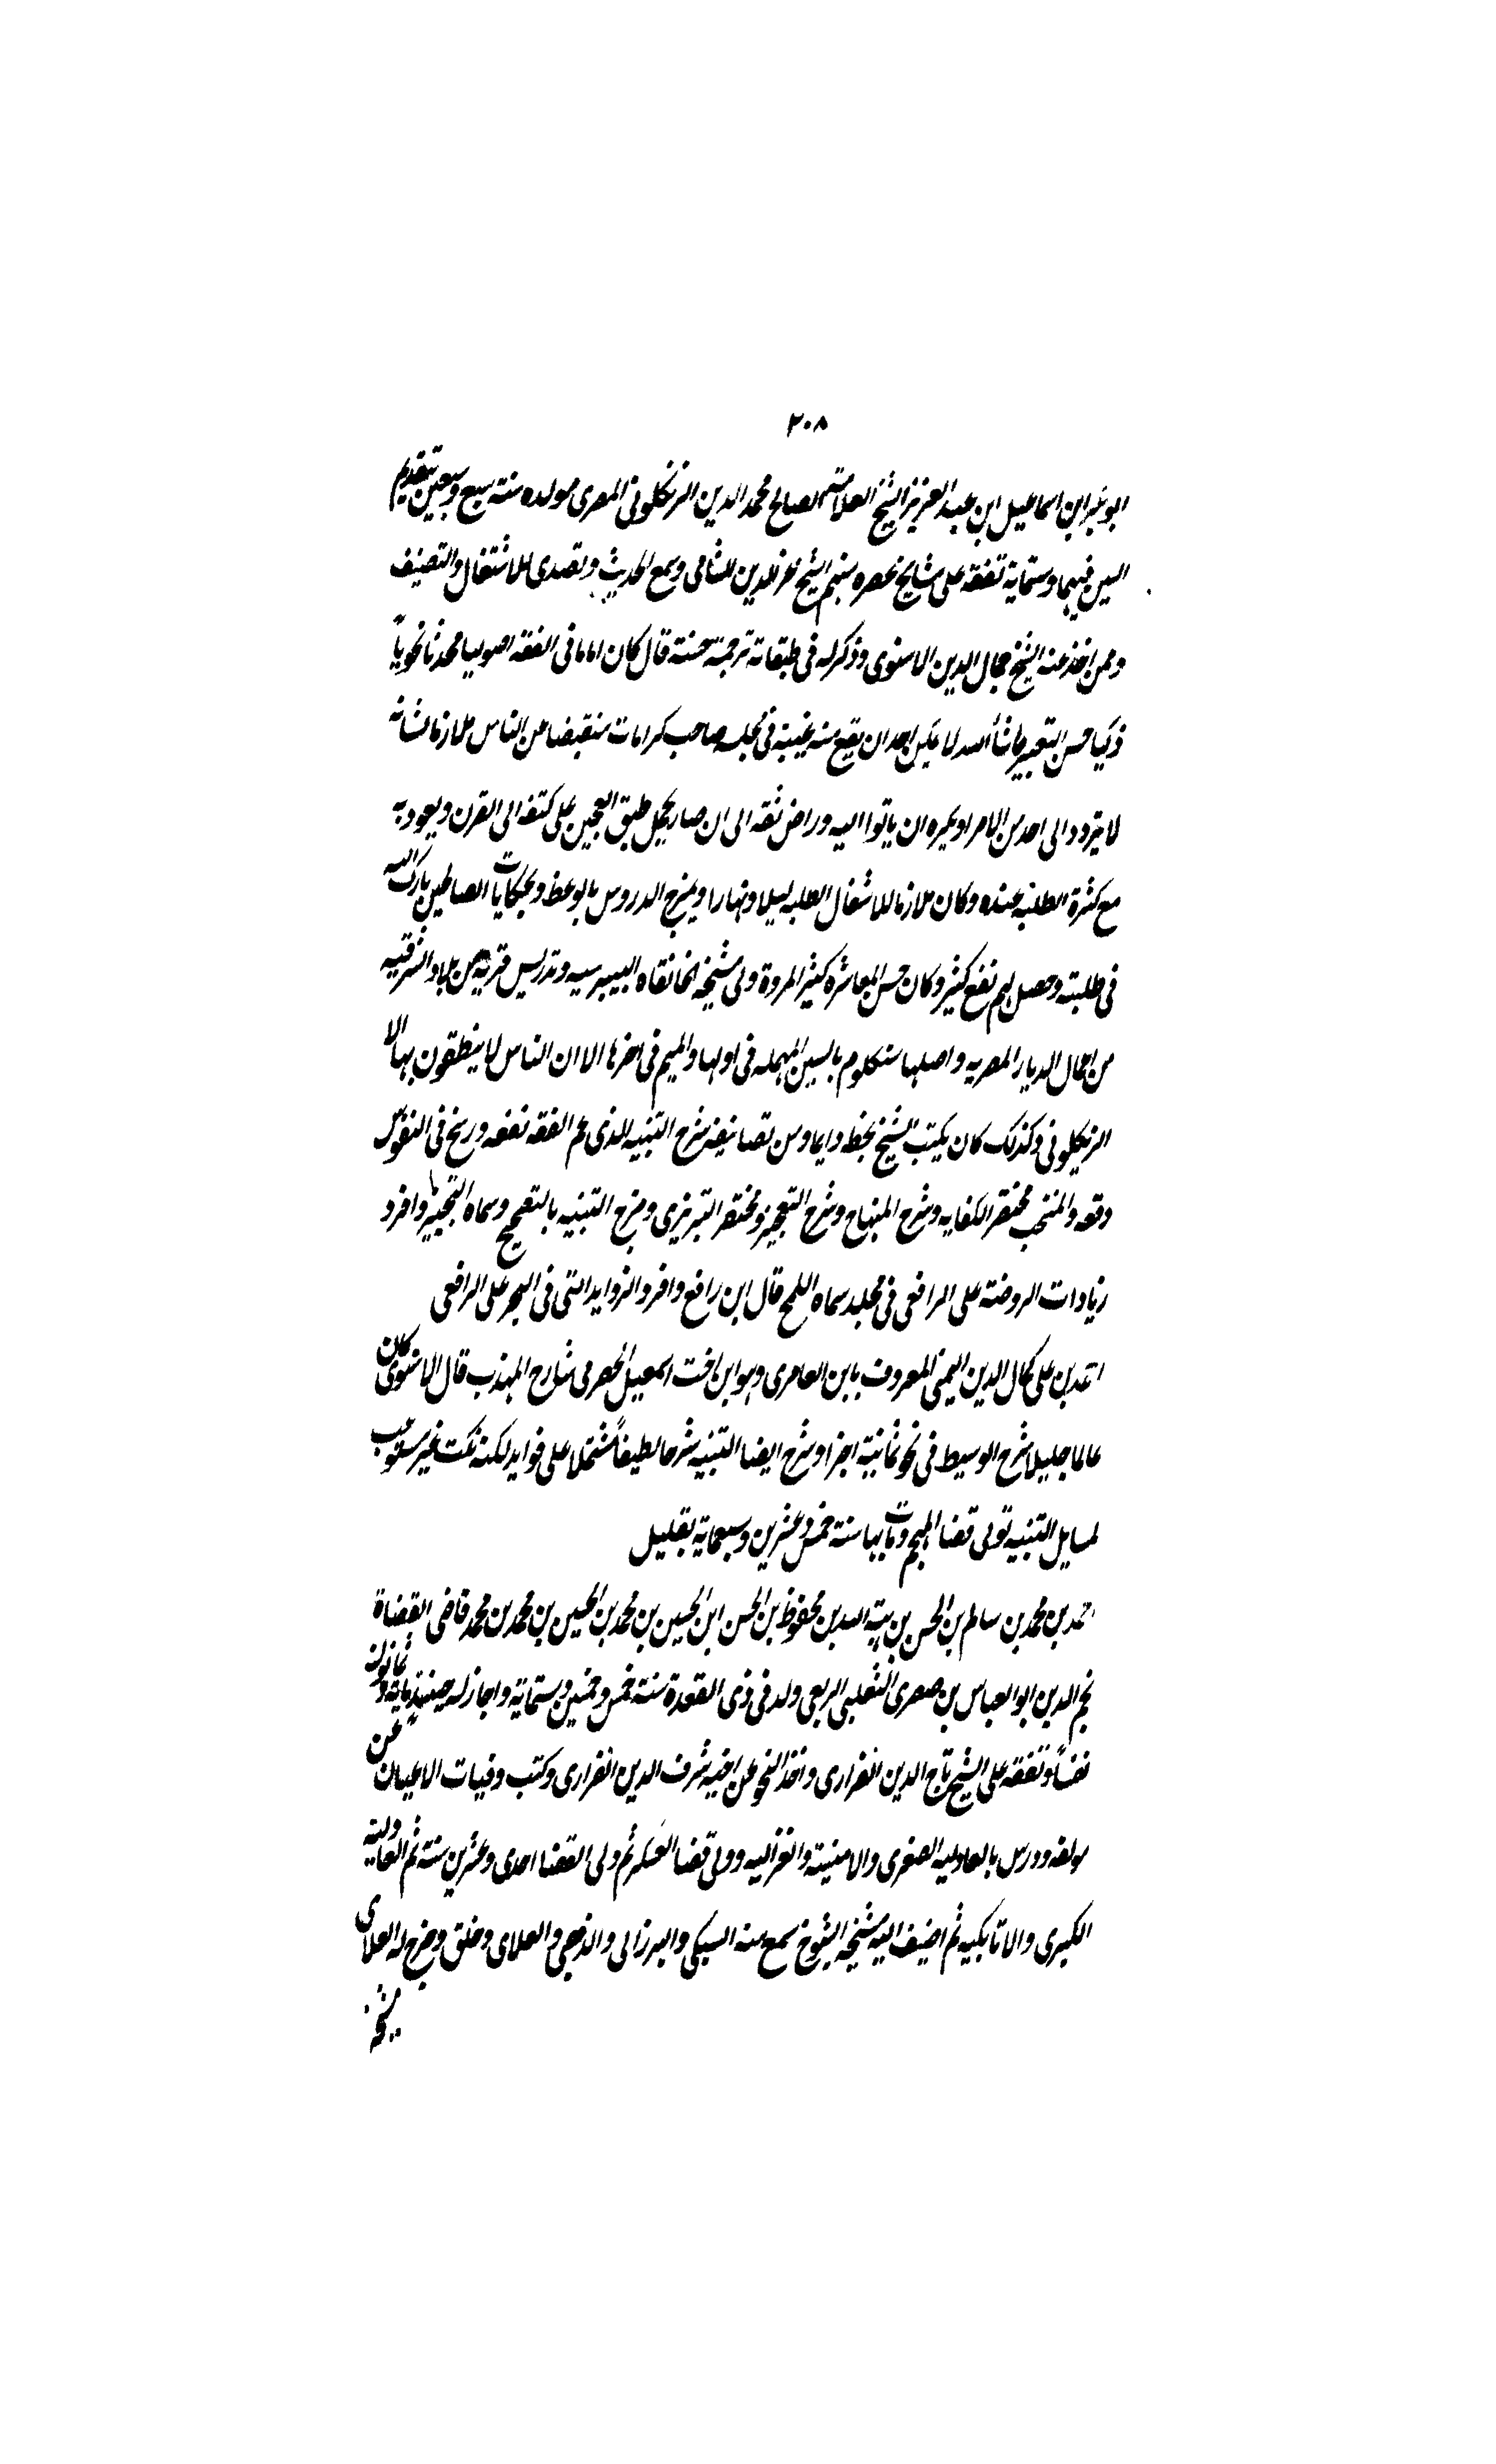 ٢٠٨
ابو بكر ابن اسماعيل ابن عبد العزيز الشيخ العلامة الصالح محمد الدين الزنكلونى المصرى مولده سنة سبع وسبعين بتقديم
السين فيهما وستماية تفقه على مشايخ عصره منهم الشيخ عز الدين النشامى وسمع الحديث وتصدى للاشتغال والتصنيف
وممن اخذ عنه الشيخ جمال الدين الاسنوى وذكر له فى طبقاته ترجمة حسنة قال كان اماما فى الفقه اصوليا محدثا نحوياً
ذكيا حسن التعبير قانتا لله لا يمكن احد ان يقع منه غيبة فى مجلسه صاحب كرامات منقبضا عن الناس ملازما لشانه
لا يتردد الى احد من الامرا ويكره ان ياتوا اليه وراض نفسه الى ان صار يحمل طبق العجين على كتفه الى الفرن ويعود به
مع كثرة الطلبة عنده وكان ملازما للاشغال الطلبه ليلا ونهارا ويمزج الدروس بالوعظ وبحكايات الصالحين بارك الله
فى طلبته وحصل لهم نفع كثير وكان حسن المعاشرة كثير المروة ولى مشيخة الخانقاه البيبرسيه وتدريس قرية من بلاد الشرقيه
من اعمال الديار المصريه واصلها سنكلوم بالسين المهمله فى اولها والميم فى اخرها الا ان الناس لا ينطقون بها الا
الزنكلونى وكذلك كان يكتب الشيخ بخطه دايما ومن تصانيفه شرح التنبيه الذى عم الفقه نفعه ورسخ فى النفوس
وقعه والمنتخب مختصر الكفايه وشرح المنهاج وشرح التعجيز ومختصر التبريزى ومزج التنبيه بالتصحيح وسماه التحبير وافرد
زيادات الروضة على الرافعى فى مجلد سماه اللمح قال ابن رافع وافرد الزوايد التى فى البحر على الرافعى
احمد بن على كمال الدين اليمنى المعروف بابن العامرى وهو ابن اخت اسمعيل الحضرمى شارح المهذب قال الاسنوى كان
عالما جليلا شرح الوسيط فى نحو ثمانية اجزا وشرح ايضا التنبيه شرحا لطيفاً مشتملا على فوايد لكنه نكت غير مستوعب
لمسايل التنبيه تولى قضا المهجم ومات بها سنة خمس وعشرين وسبعماية بقليل
احمد بن محمد بن سالم بن الحسن بن هبة الله بن محفوظ بن الحسن ابن الحسين بن محمد بن الحسين بن محمد بن محمد قاضى القضاة
نجم الدين ابو العباس بن صصرى التغلبى الربعى ولد فى ذى القعدة سنة خمس وخمسين وستماية واجاز له ماية وثمانون
نفساً وتفقه على الشيخ تاج الدين الفزارى واخذ النحو عن اخيه شرف الدين الفزارى وكتب وفيات الاعيان عن
مولفه ودرس بالعادليه الصغرى والامينية والغزاليه وولى قضا العسكر ثم ولى القضا احدى وعشرين سنة ثم العادلية
الكبرى والاتابكيه ثم اضيف اليه مشيخة الشيوخ سمع منه السبكى والبرزالى والذهبى والعلاى وخلق وخرج له العلاى
مشيخة